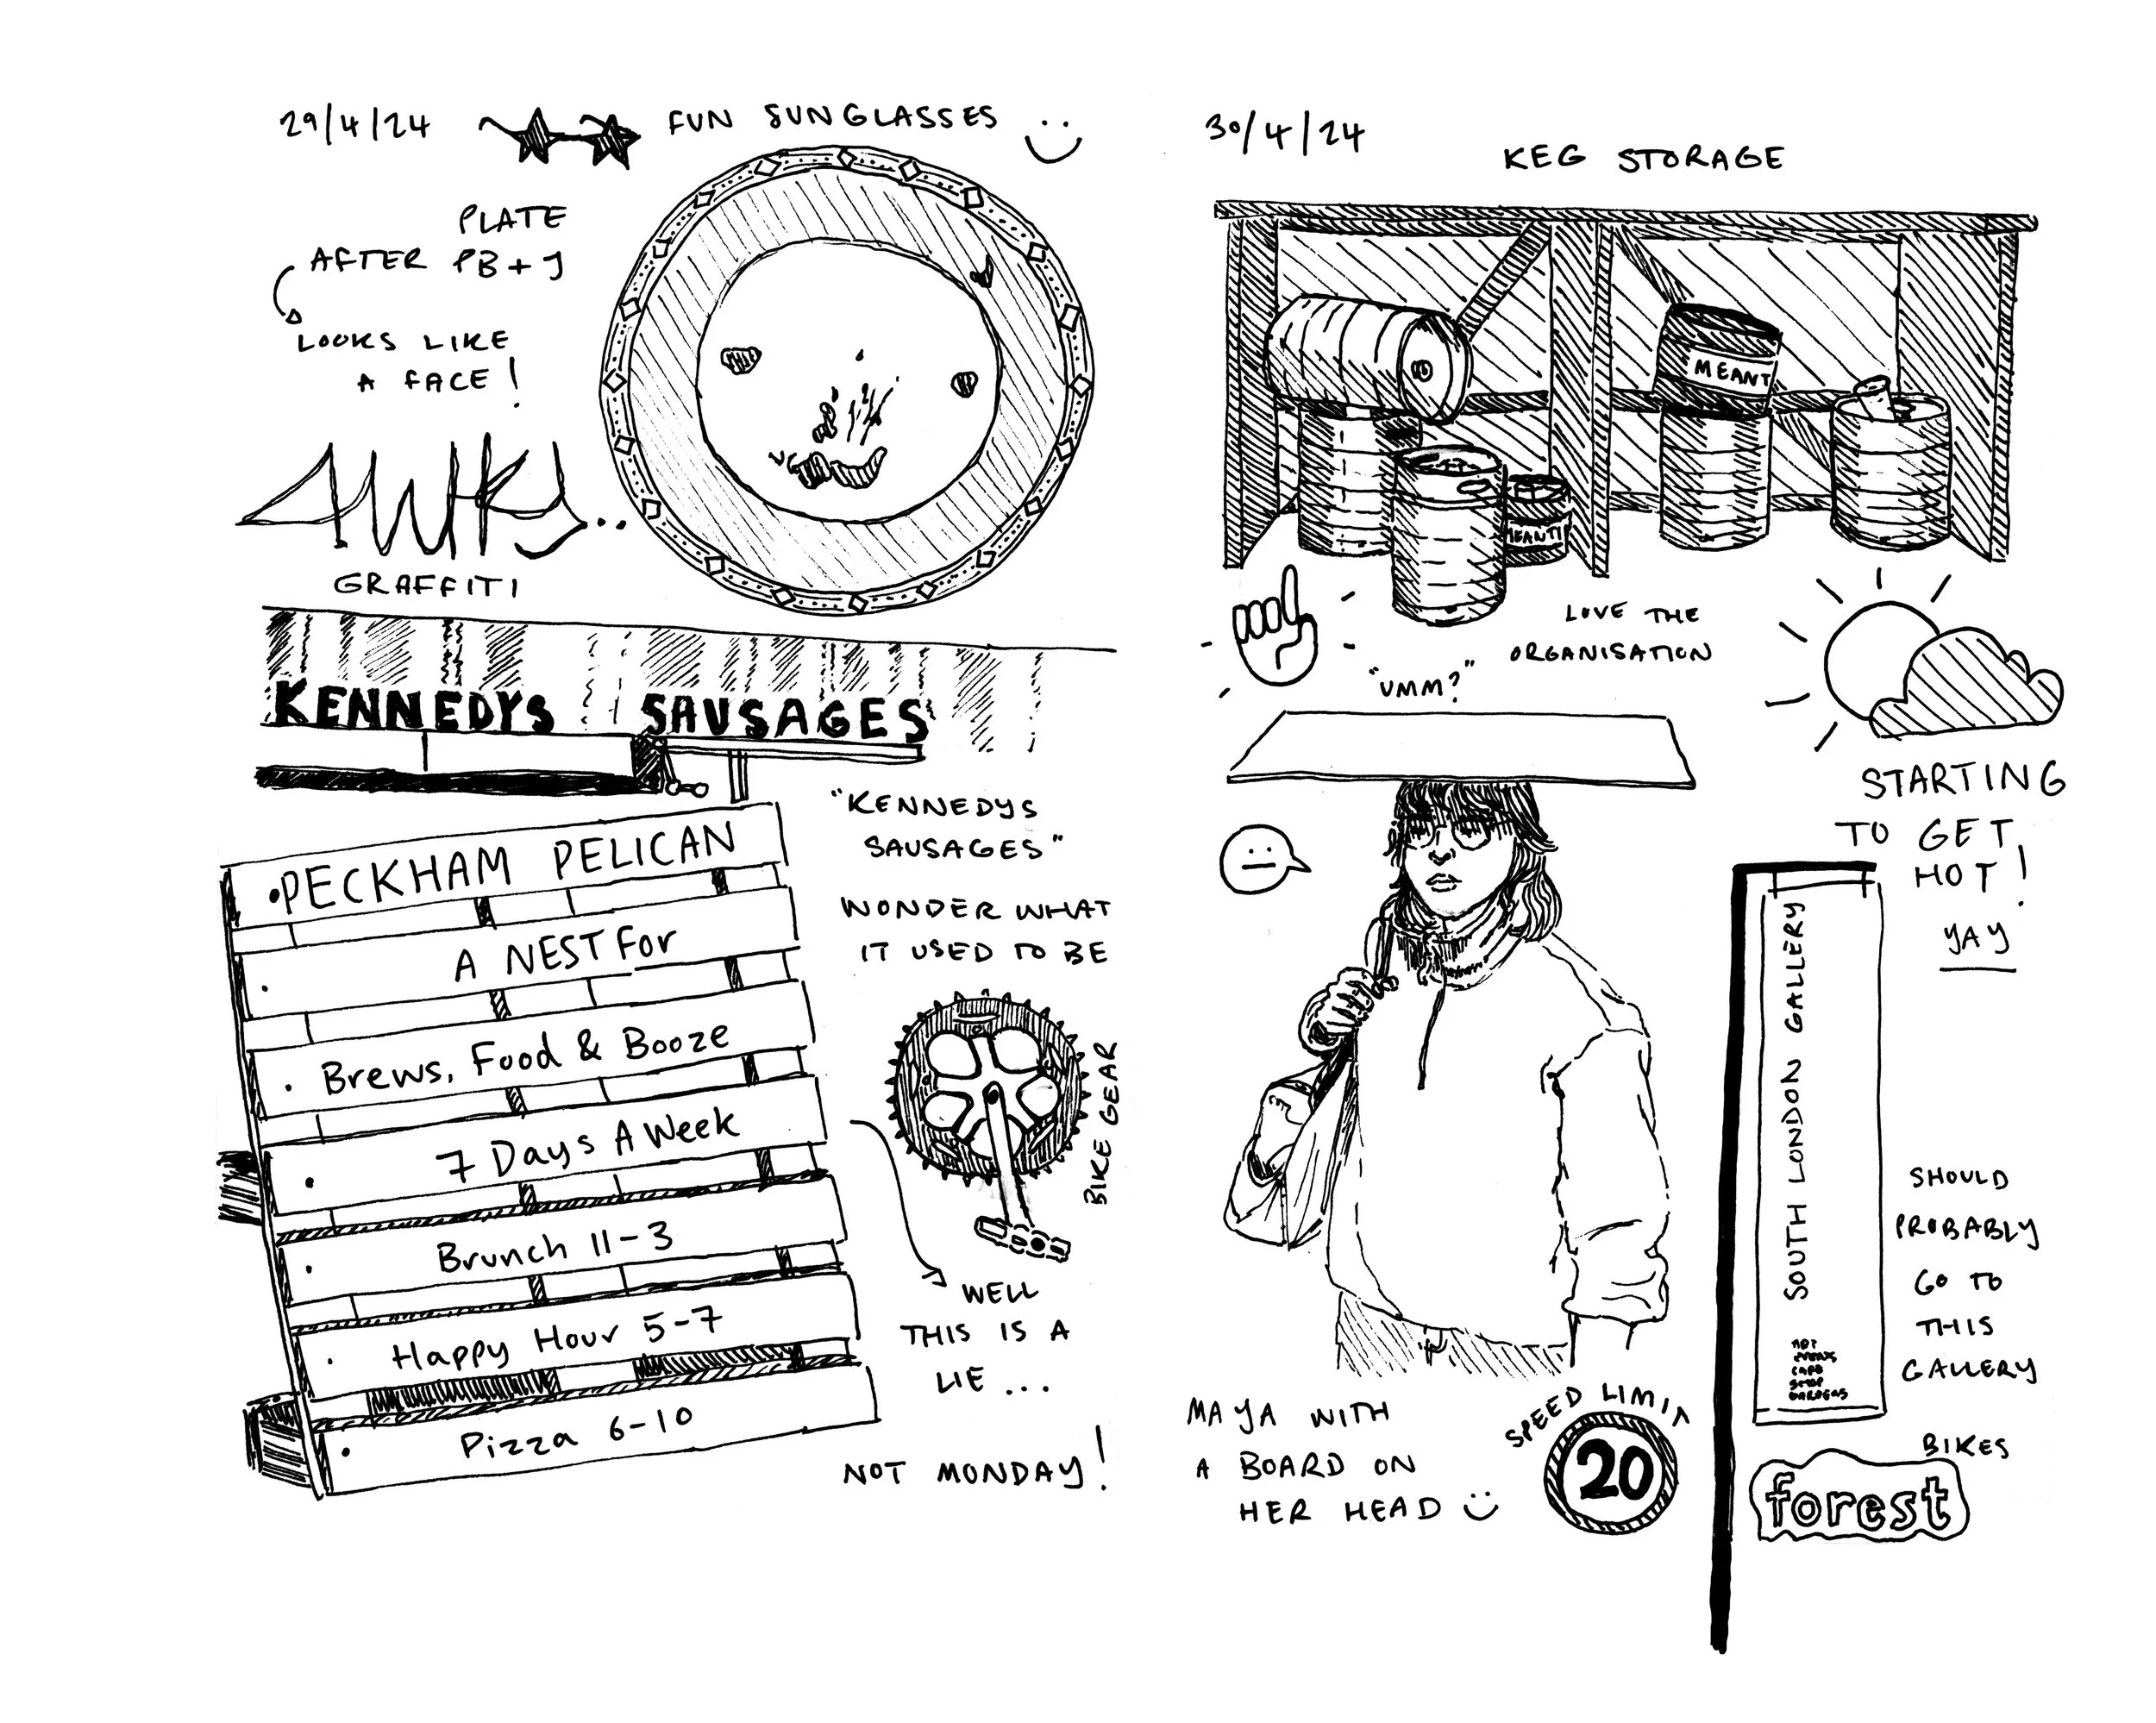 29/4/24
FUN SUNGLASSES
PLATE
AFTER PB + J
LOOKS LIKE
A FACE!
GRAFFITI
KENNEDYS SAUSAGES
"KENNEDYS
SAUSAGES"
WONDER WHAT
IT USED TO BE
PECKHAM PELICAN
A NEST FOR
Brews, Food & Booze
7 Days A Week
Brunch 11-3
Happy Hour 5-7
Pizza 6-10
BIKE GEAR
WELL
THIS IS A
LIE...
NOT MONDAY!
30/4/24
KEG STORAGE
MEANT
MEANTI
LOVE THE
ORGANISATION
"UMM?"
STARTING
TO GET
HOT!
YAY
SOUTH LONDON GALLERY
SHOULD
PROBABLY
GO TO
THIS
GALLERY
MAYA WITH
A BOARD ON
HER HEAD
SPEED LIMIT
20
BIKES
forest